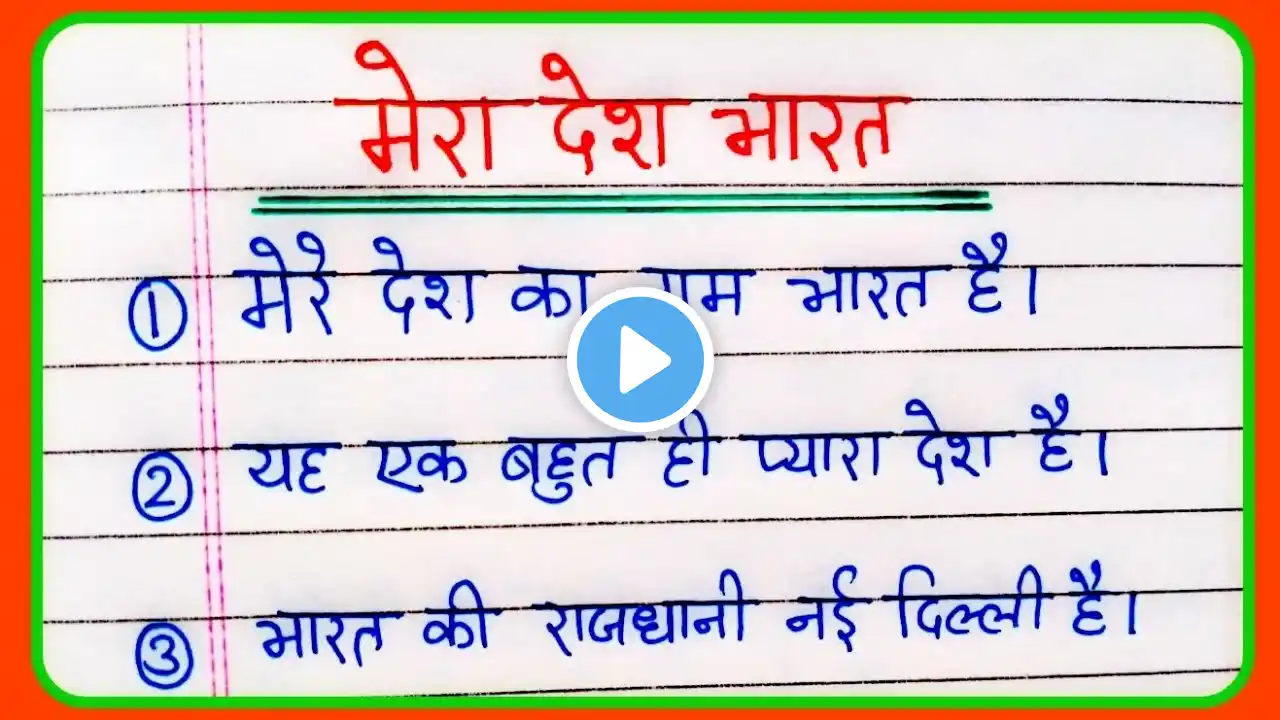 मेरा देश भारत
① मेरे देश का नाम भारत है।
② यह एक बहुत ही प्यारा देश है।
③ भारत की राजधानी नई दिल्ली है।